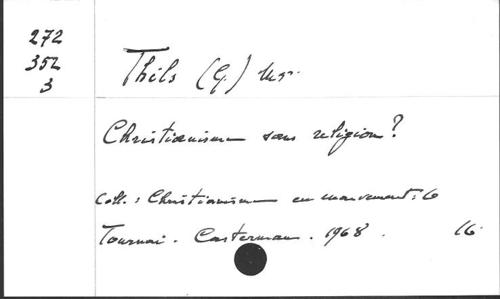 272
352
3
Thils (G.) Mgr.
Christianisme sans religion?
Coll.: Christianisme en mouvement: 6
Tournai. Casterman. 1968. 16